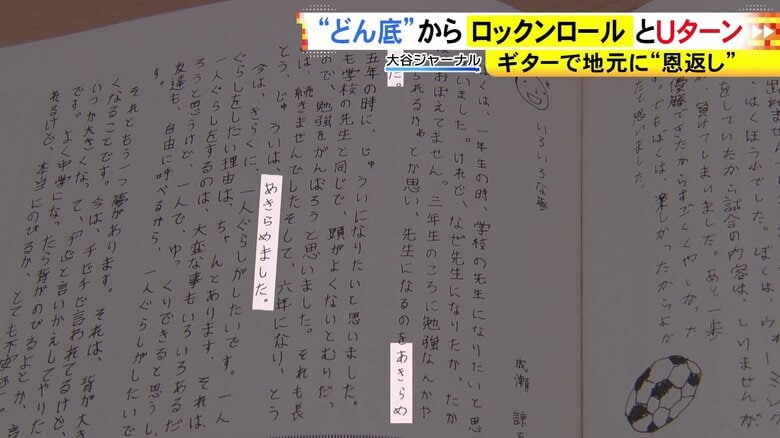 “どん底”から ロックンロール とUターン
大谷ジャーナル
ギターで地元に“恩返し”
出れません
ぼくはう小でした。ぼくは、ウォーミン
をしていたから試合の内容は、しりませんが
負けてしまいました。あと一歩
優勝できたからすごくくやしかった
す。でもぼくは、楽しかったからよか
たと思いました。
いろいろな夢
成瀬 諒
くは、一年生の時、学校の先生になりたいと思
いました。けれど、なぜ先生になりたかったか
おぼえてません。三年生のころに勉強なんかや
られるかぁと思い、先生になるのをあきらめ
た。
五年の時に、じゅういになりたいと思いました。
も学校の先生と同じで、頭がよくないとむりだっ
ので、勉強をがんばろうと思いました。それも長
は、続きませんでした。そして、六年になり、とう
とう、じゅういは、あきらめました。
今は、きらくに、一人ぐらしがしたいです。一人
ぐらしをしたい理由は、ちゃんとあります。それは、
一人ぐらしをするのは、大変な事もいろいろあるだ
ろうと思うけど、一人で、ゆっくりできると思うし、
友達も、自由に呼べるから、一人ぐらしがしたいで
それともう一つ夢があります。それは、背が大き
くなることです。今は、チビチビ言われてるけど、
いつか大きくなって、「チビ」と言いかえしてやりた
です。よく中学になったら背がのびるよとか、言
れるけど、本当にのびるか、とても不安で